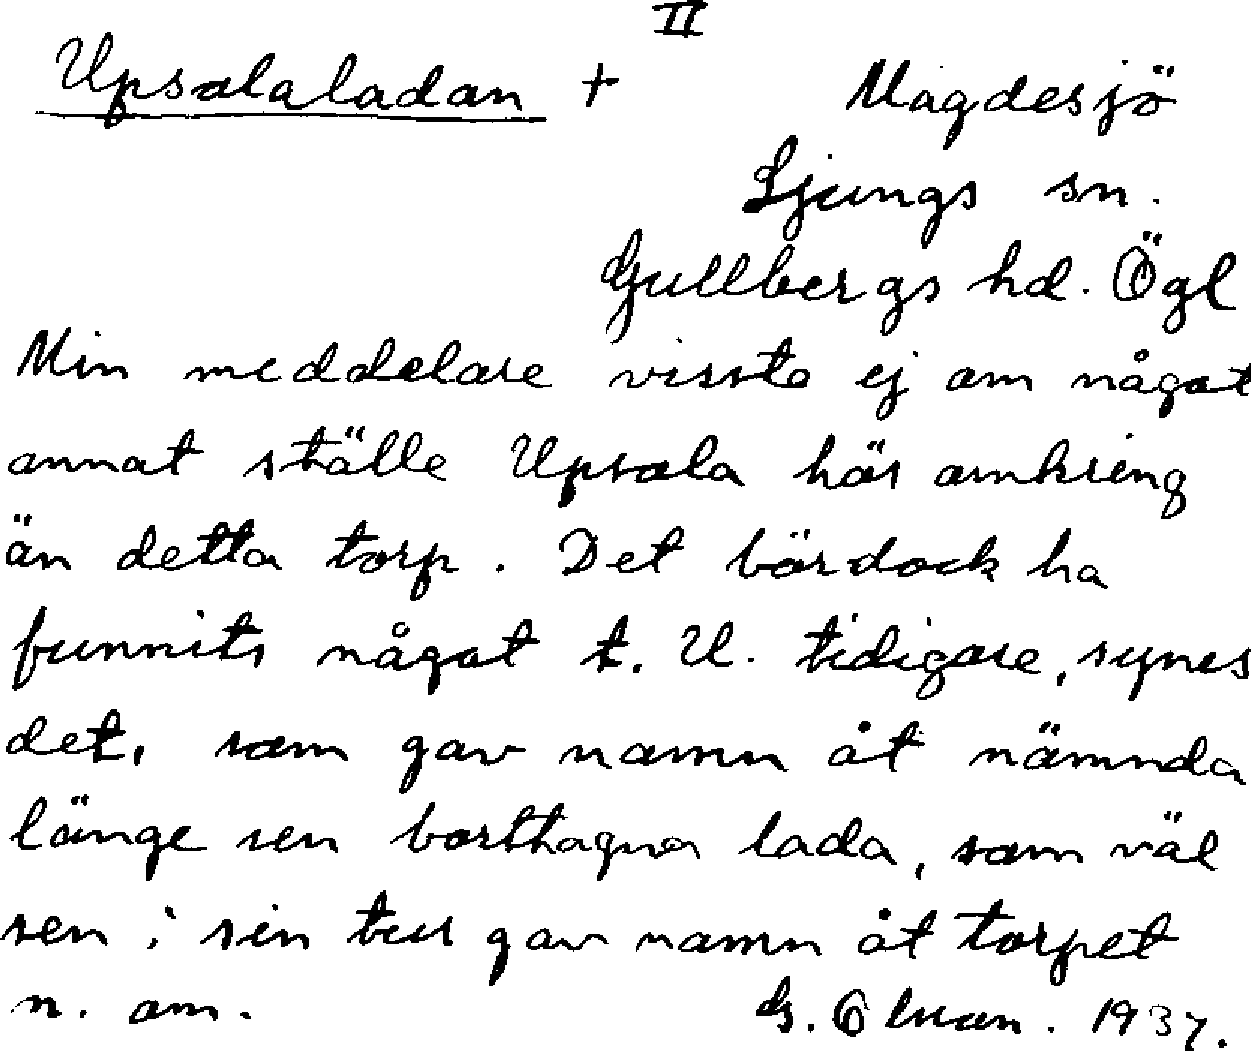 II
Upsalaladan + Magdesjö
Ljungs sn.
Gullbergs hd. Ögl
Min meddelare visste ej om något
annat ställe Upsala här omkring
än detta torp. Det bör dock ha
funnits något t. U. tidigare, synes
det, som gav namn åt nämnda
länge sen borttagna lada, som väl
sen i sin tur gav namn åt torpet
n. om. G. Olsson. 1937.